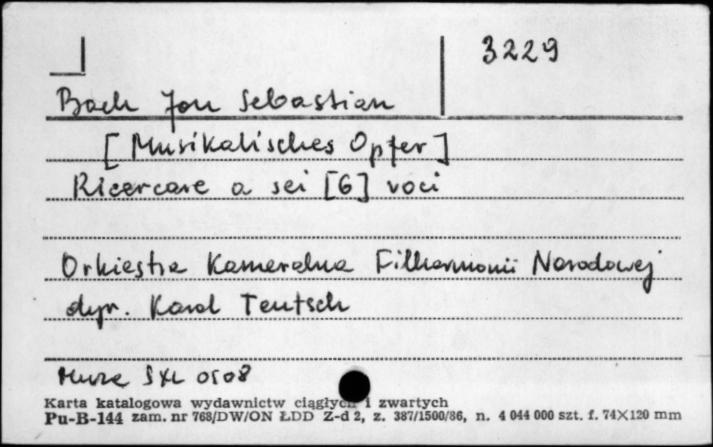 3229
Bach Jan Sebastian
[Musikalisches Opfer]
Ricercare a sei [6] voci
Orkiestra Kameralna Filharmonii Narodowej
dyr. Karol Teutsch
Muza SXL 0508
Karta katalogowa wydawnictw ciągłych i zwartych
Pu-B-144 zam. nr 768/DW/ON ŁDD Z-d 2, z. 387/1500/86, n. 4 044 000 szt. f. 74×120 mm